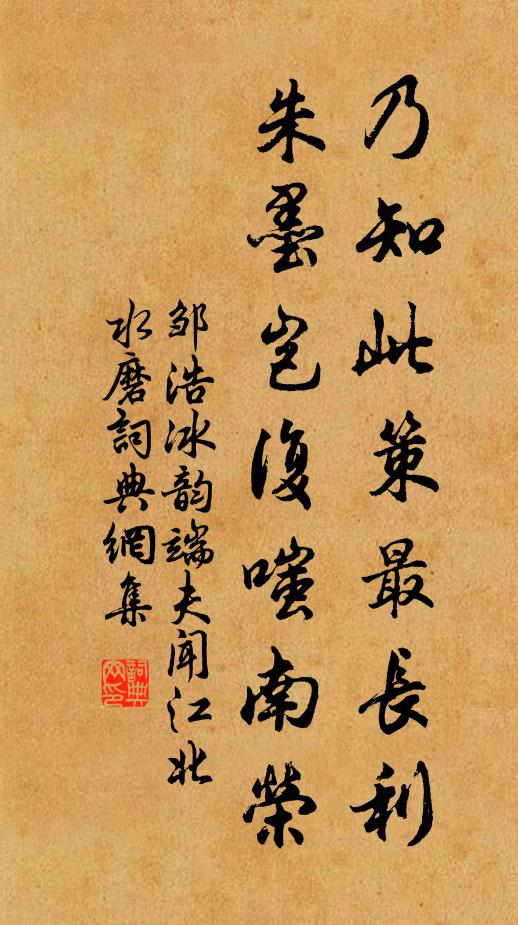 乃知此策最長利
朱墨岂復嗤南榮
邹浩冰韵端夫闻江北
水磨詞典網集
詞典